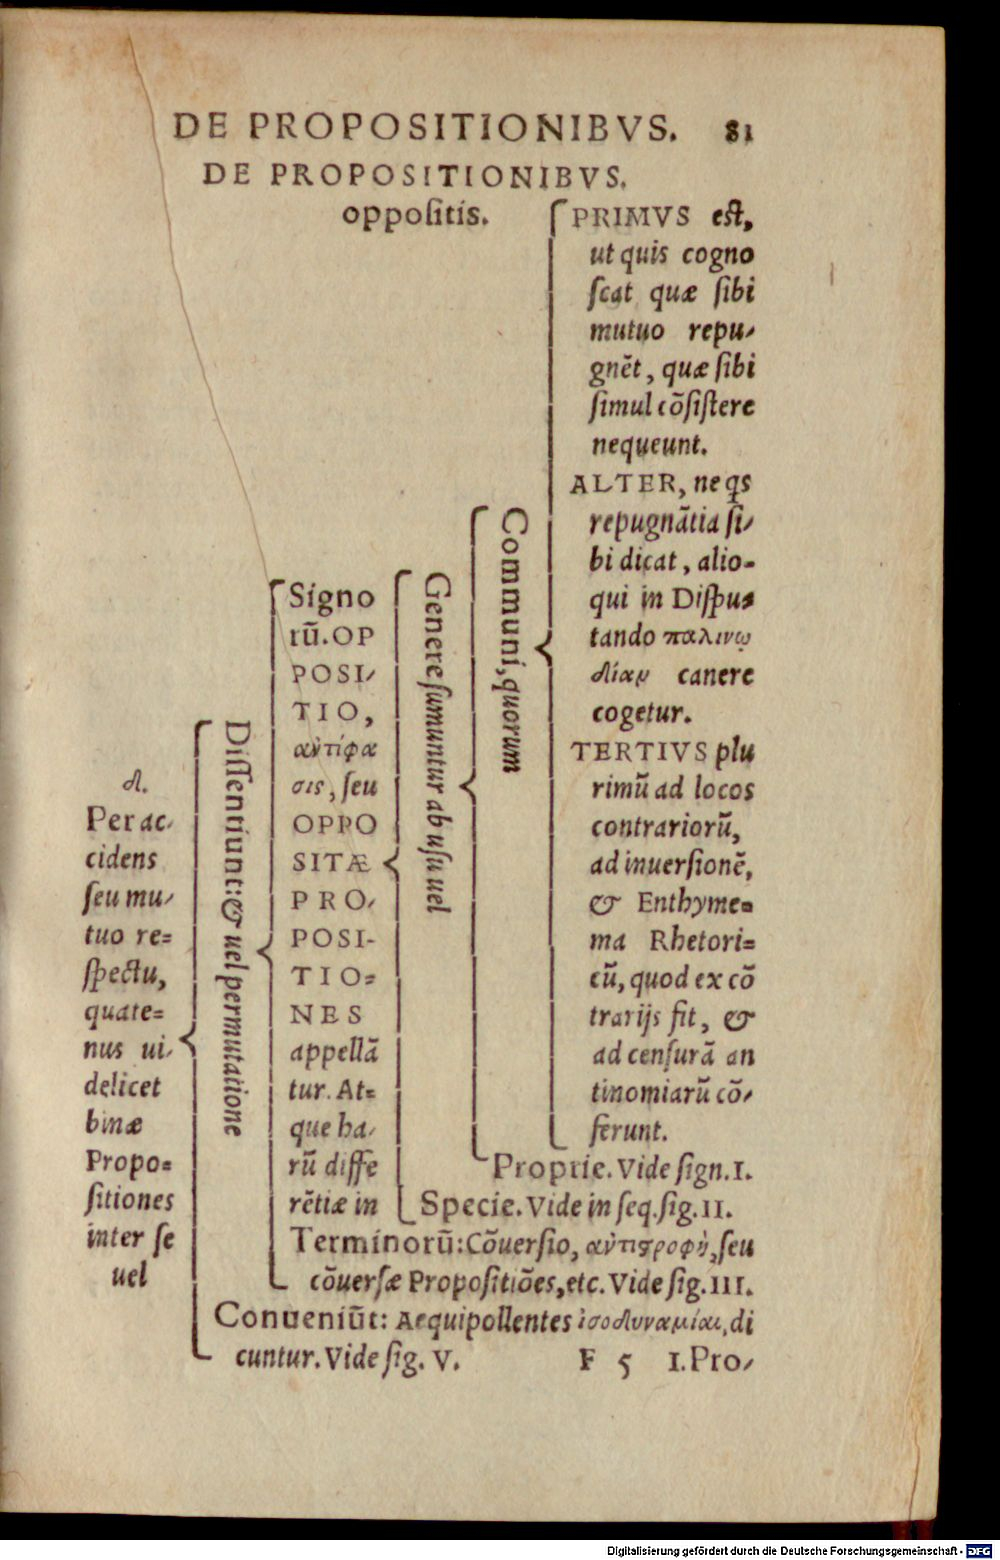 DE PROPOSITIONIBVS. 81
DE PROPOSITIONIBVS.
oppositis.
δ.
Per ac-
cidens
seu mu-
tuo re=
spectu,
quate=
nus ui-
delicet
binæ
Propo=
sitiones
inter se
uel
Dissentiunt: & uel permutatione
Signo
rũ. OP
POSI-
TIO,
ἀντίφα
σις, seu
OPPO
SITÆ
PRO-
POSI-
TIO=
NES
appellã
tur. At=
que ha-
rũ diffe
rẽtiæ in
Genere sumuntur ab usu uel
Communi, quorum
PRIMVS est,
ut quis cogno
scat quæ sibi
mutuo repu-
gnẽt, quæ sibi
simul cõsistere
nequeunt.
ALTER, ne qs
repugnãtia si-
bi dicat, alio-
qui in Dispu=
tando παλινῳ
δίαν canere
cogetur.
TERTIVS plu
rimũ ad locos
contrariorũ,
ad inuersionẽ,
& Enthyme=
ma Rhetori=
cũ, quod ex cõ
trarijs fit, &
ad censurã an
tinomiarũ cõ-
ferunt.
Proprie. Vide sign. I.
Specie. Vide in seq. sig. II.
Terminorũ: Cõuersio, ἀντιστροφὴ, seu
cõuersæ Propositiões, etc. Vide sig. III.
Conueniũt: Aequipollentes ἰσοδυναμίαι, di
cuntur. Vide sig. V. F 5 I. Pro-
Digitalisierung gefördert durch die Deutsche Forschungsgemeinschaft - DFG